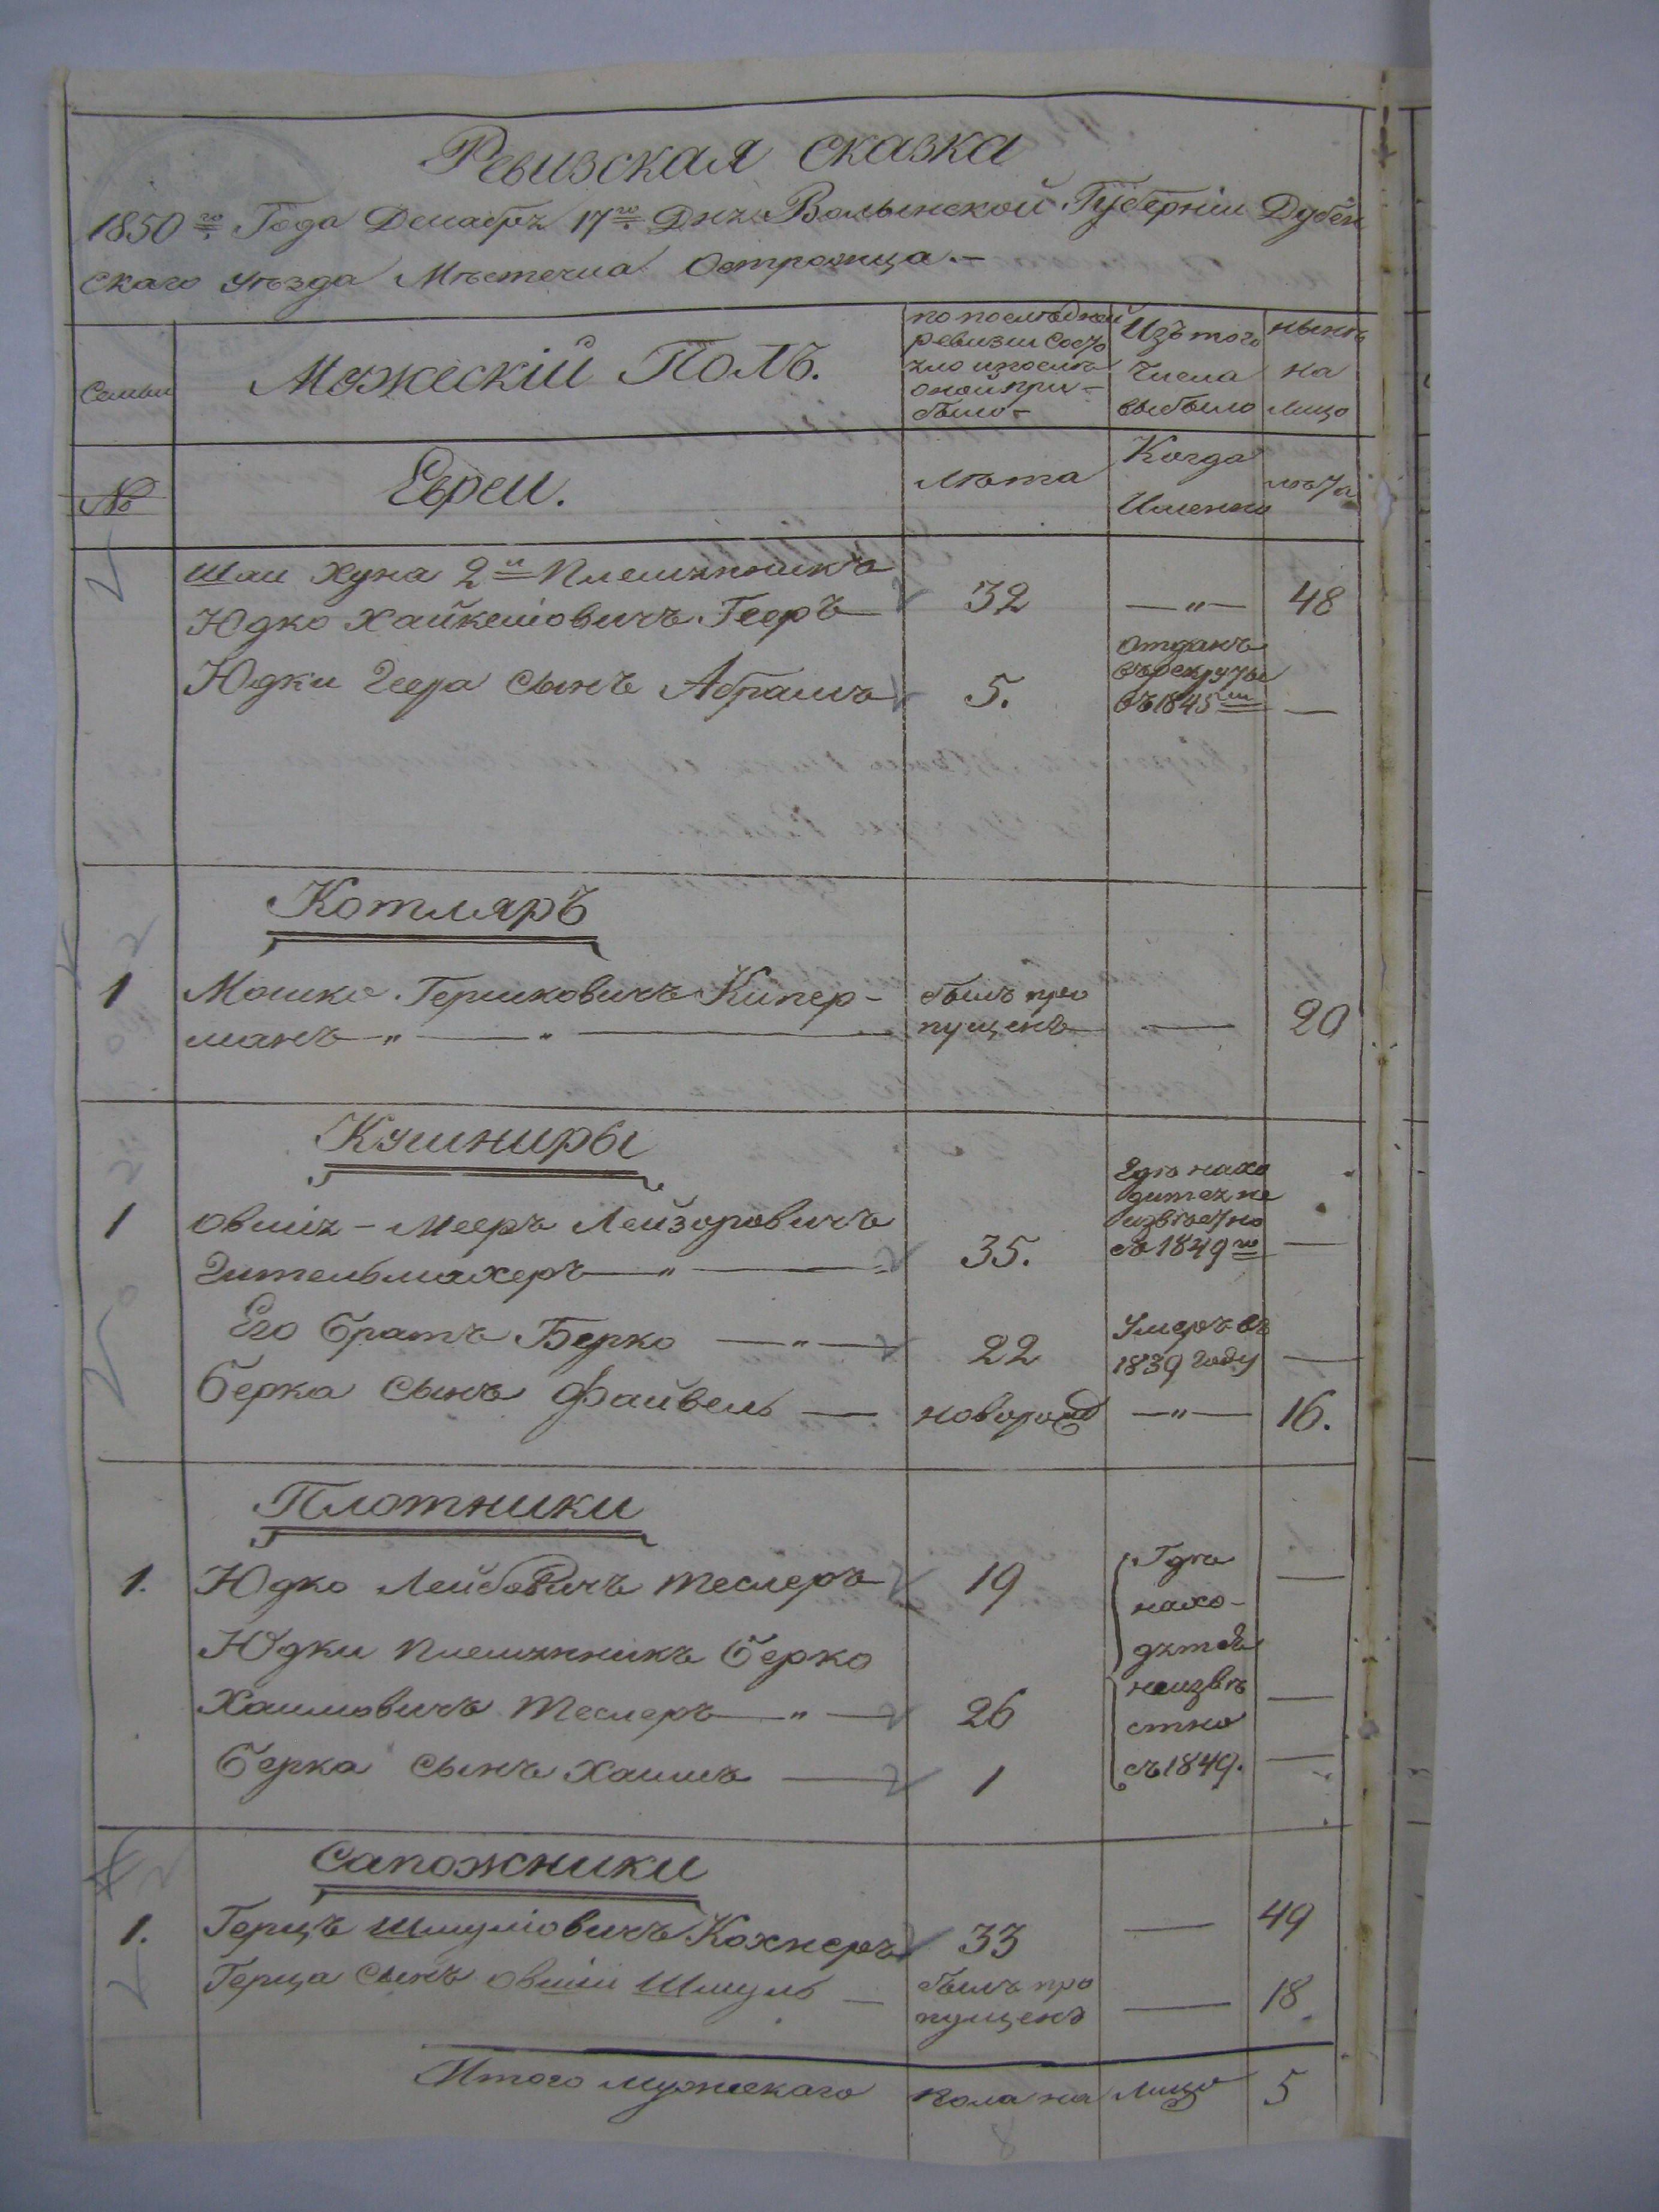 Ревизская сказка
1850го Года Декабря 17го Дня Волынской Губерніи Дубен
скаго уѣзда Мѣстечка Острожца.—
Семьи
Мужескій Полъ.
по послѣдней
ревизіи состо
яло и послѣ
оной при-
было-
Изъ того
числа
выбыло
нынѣ
на
лицо
№
Евреи.
лѣта
Когда
Именно
лѣта
Шаи Хуна 2й Племянникъ
Юдко Хайкелiовичъ Гееръ 32 —„— 48
Юдки Геера сынъ Абрамъ 5.
отданъ
въ рекруты
въ 1845м —
Котляръ
1 Мошко Гершковичъ Кипер-
манъ —„— „ —
былъ про
пущенъ — 20
Кушниры
1 Овшія - Мееръ Лейзоровичъ
Гительмахеръ —„— 35.
Где нахо
дится не
извѣстно
съ 1849го —
Его братъ Берко —„— 22
Умеръ въ
1839 году —
Берка сынъ Файвель — новорожд —„— 16.
Плотники
1. Юдко Лейбовичъ Теслеръ 19
Юдки племянникъ Берко
Хаимовичъ Теслеръ —„— 26
Берка сынъ Хаимъ — 1
Гдѣ
нахо-
дятся
неизвѣ
стно
съ 1849.
Сапожники
1. Герцъ Шмулiовичъ Кохнеръ 33 — 49
Герца сынъ Овшiи Шмуль —
былъ про
пущенъ — 18
Итого мужескаго пола на лицо 5
8